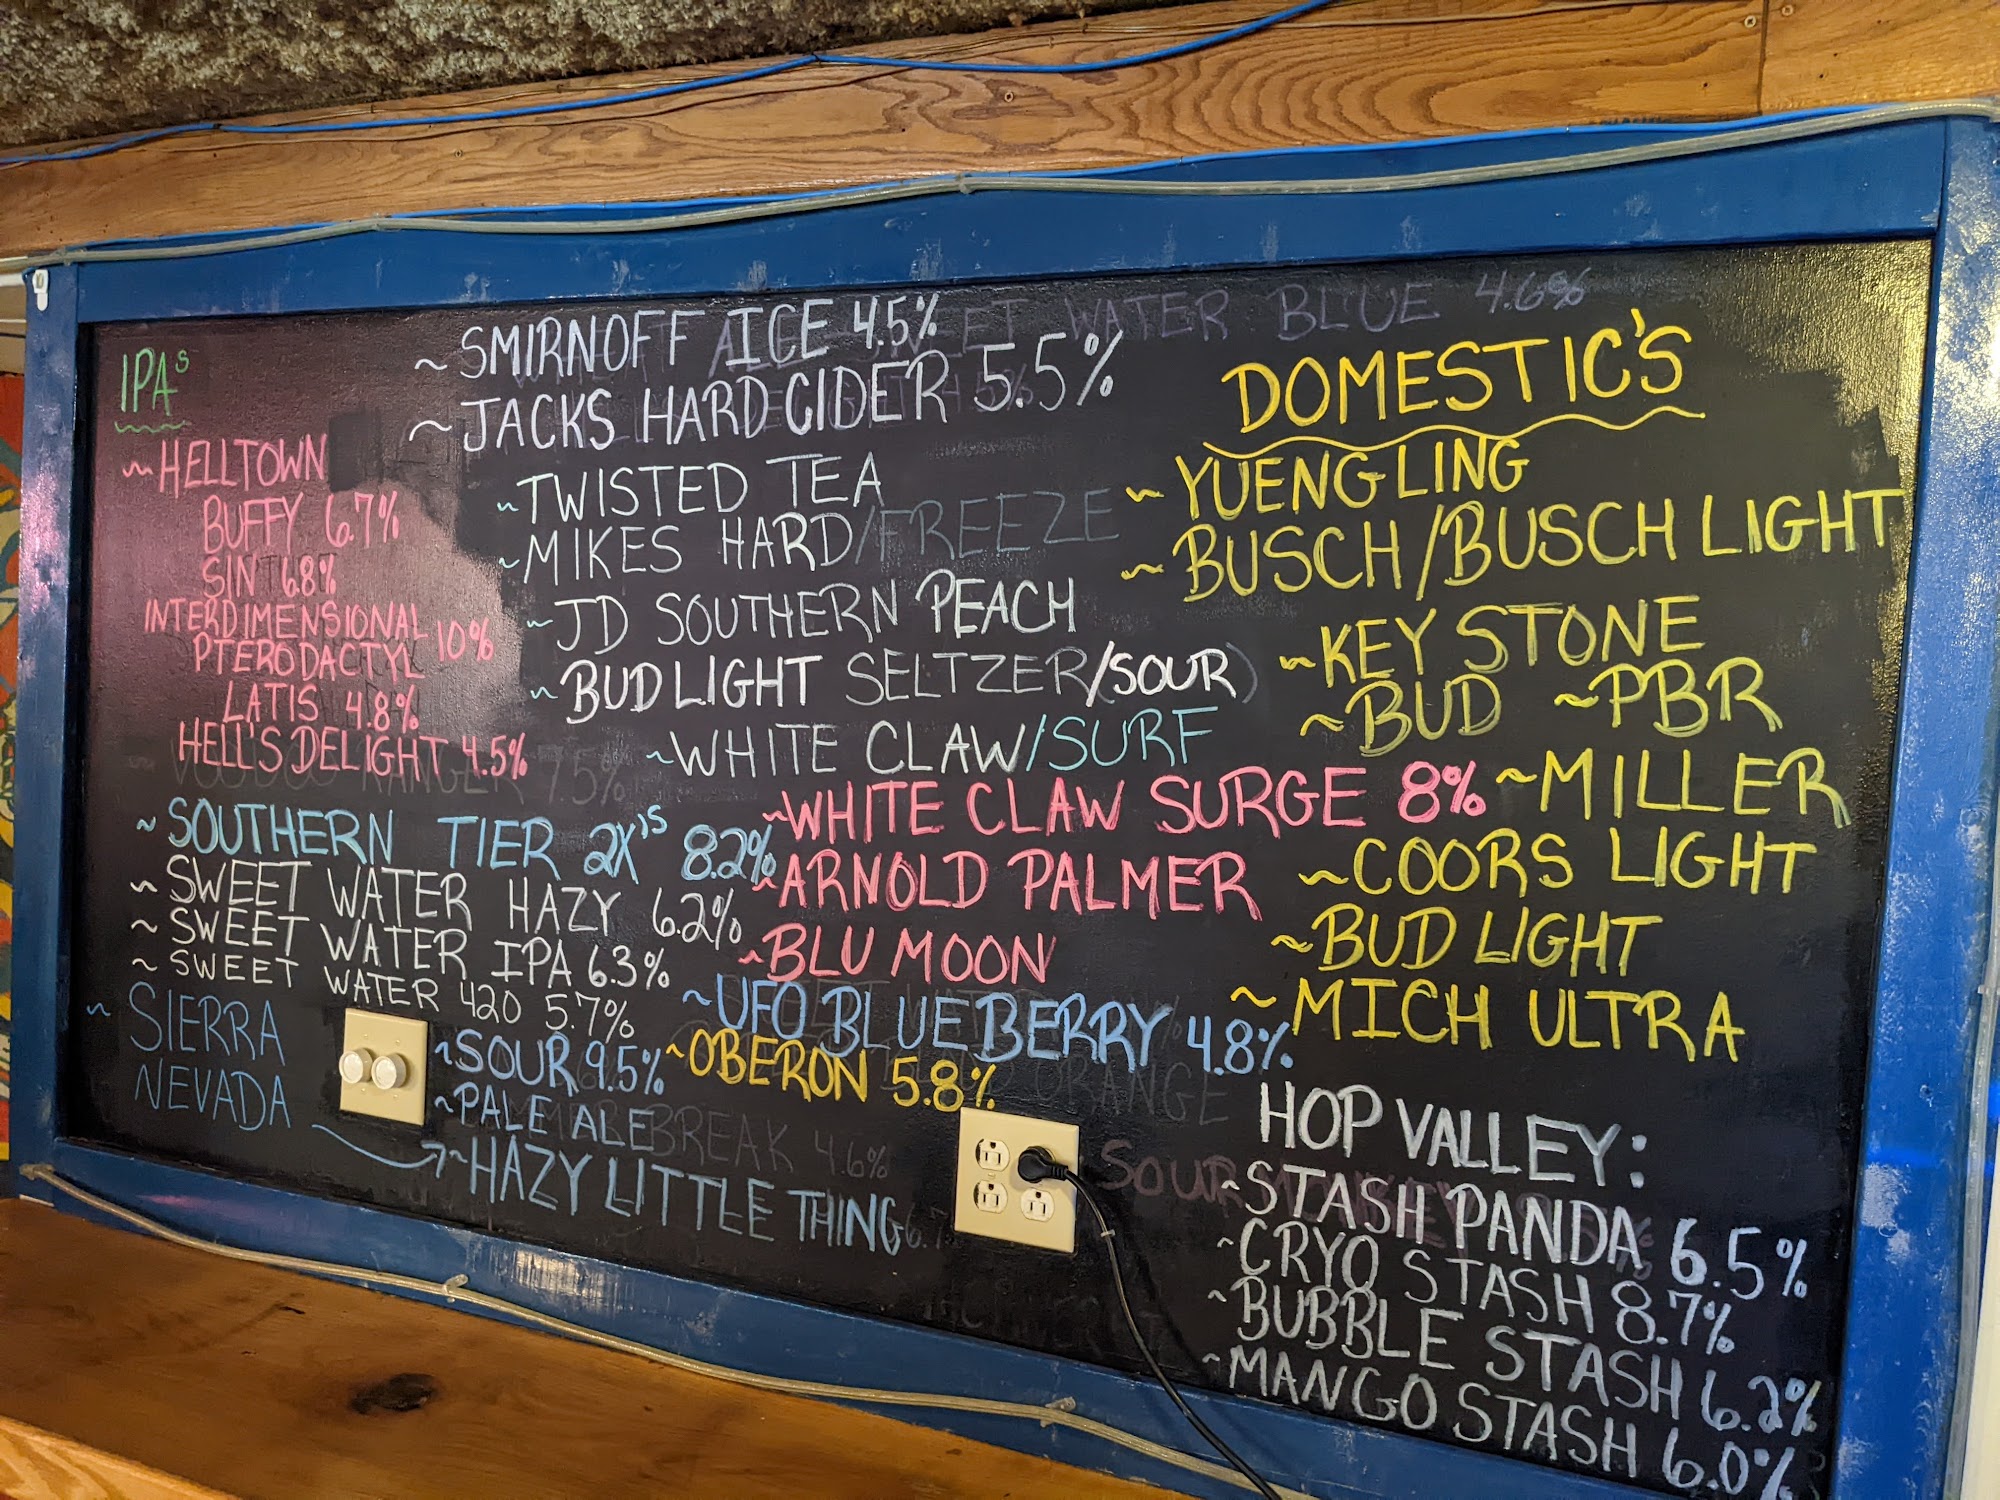 IPAs
~HELLTOWN
BUFFY 6.7%
SIN 6.8%
INTERDIMENSIONAL
PTERODACTYL 10%
LATIS 4.8%
HELL'S DELIGHT 4.5%
VOODOO RANGER 7.5%
~SOUTHERN TIER 2X'S 8.2%
~SWEET WATER HAZY 6.2%
~SWEET WATER IPA 6.3%
~SWEET WATER 420 5.7%
~SIERRA
NEVADA
~SOUR 9.5%
~PALE ALE
BREAK 4.6%
~HAZY LITTLE THING 6.7
~SMIRNOFF ICE 4.5%
WATER BLUE 4.6%
~JACKS HARD CIDER 5.5%
~TWISTED TEA
~MIKES HARD/FREEZE
~JD SOUTHERN PEACH
~BUD LIGHT SELTZER/(SOUR)
~WHITE CLAW/SURF
~WHITE CLAW SURGE 8%
~ARNOLD PALMER
~BLU MOON
~UFO BLUEBERRY 4.8%
~OBERON 5.8%
ORANGE
SOUR
DOMESTIC'S
~YUENGLING
~BUSCH/BUSCH LIGHT
~KEY STONE
~BUD ~PBR
~MILLER
~COORS LIGHT
~BUD LIGHT
~MICH ULTRA
HOP VALLEY:
~STASH PANDA 6.5%
~CRYO STASH 8.7%
~BUBBLE STASH 6.2%
~MANGO STASH 6.0%